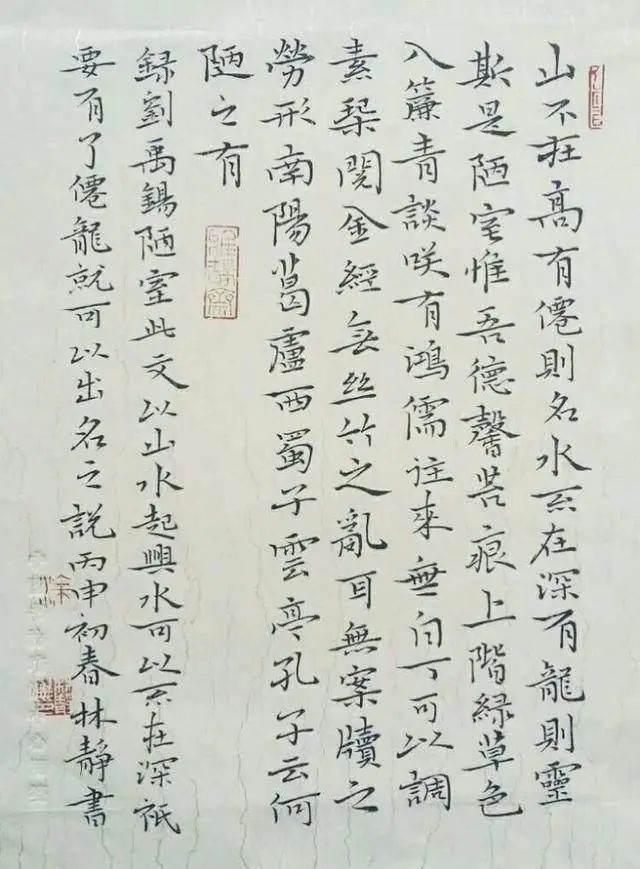 山不在高有僊則名水不在深有龍則靈
斯是陋室惟吾德馨苔痕上階緑草色
入簾青談咲有鴻儒往來無白丁可以調
素琴閱金經無丝竹之亂耳無案牘之
勞形南陽葛廬西蜀子雲亭孔子云何
陋之有
録劉禹錫陋室此文以山水起興水可以不在深祇
要有了僊龍就可以出名之説丙申初春林靜書